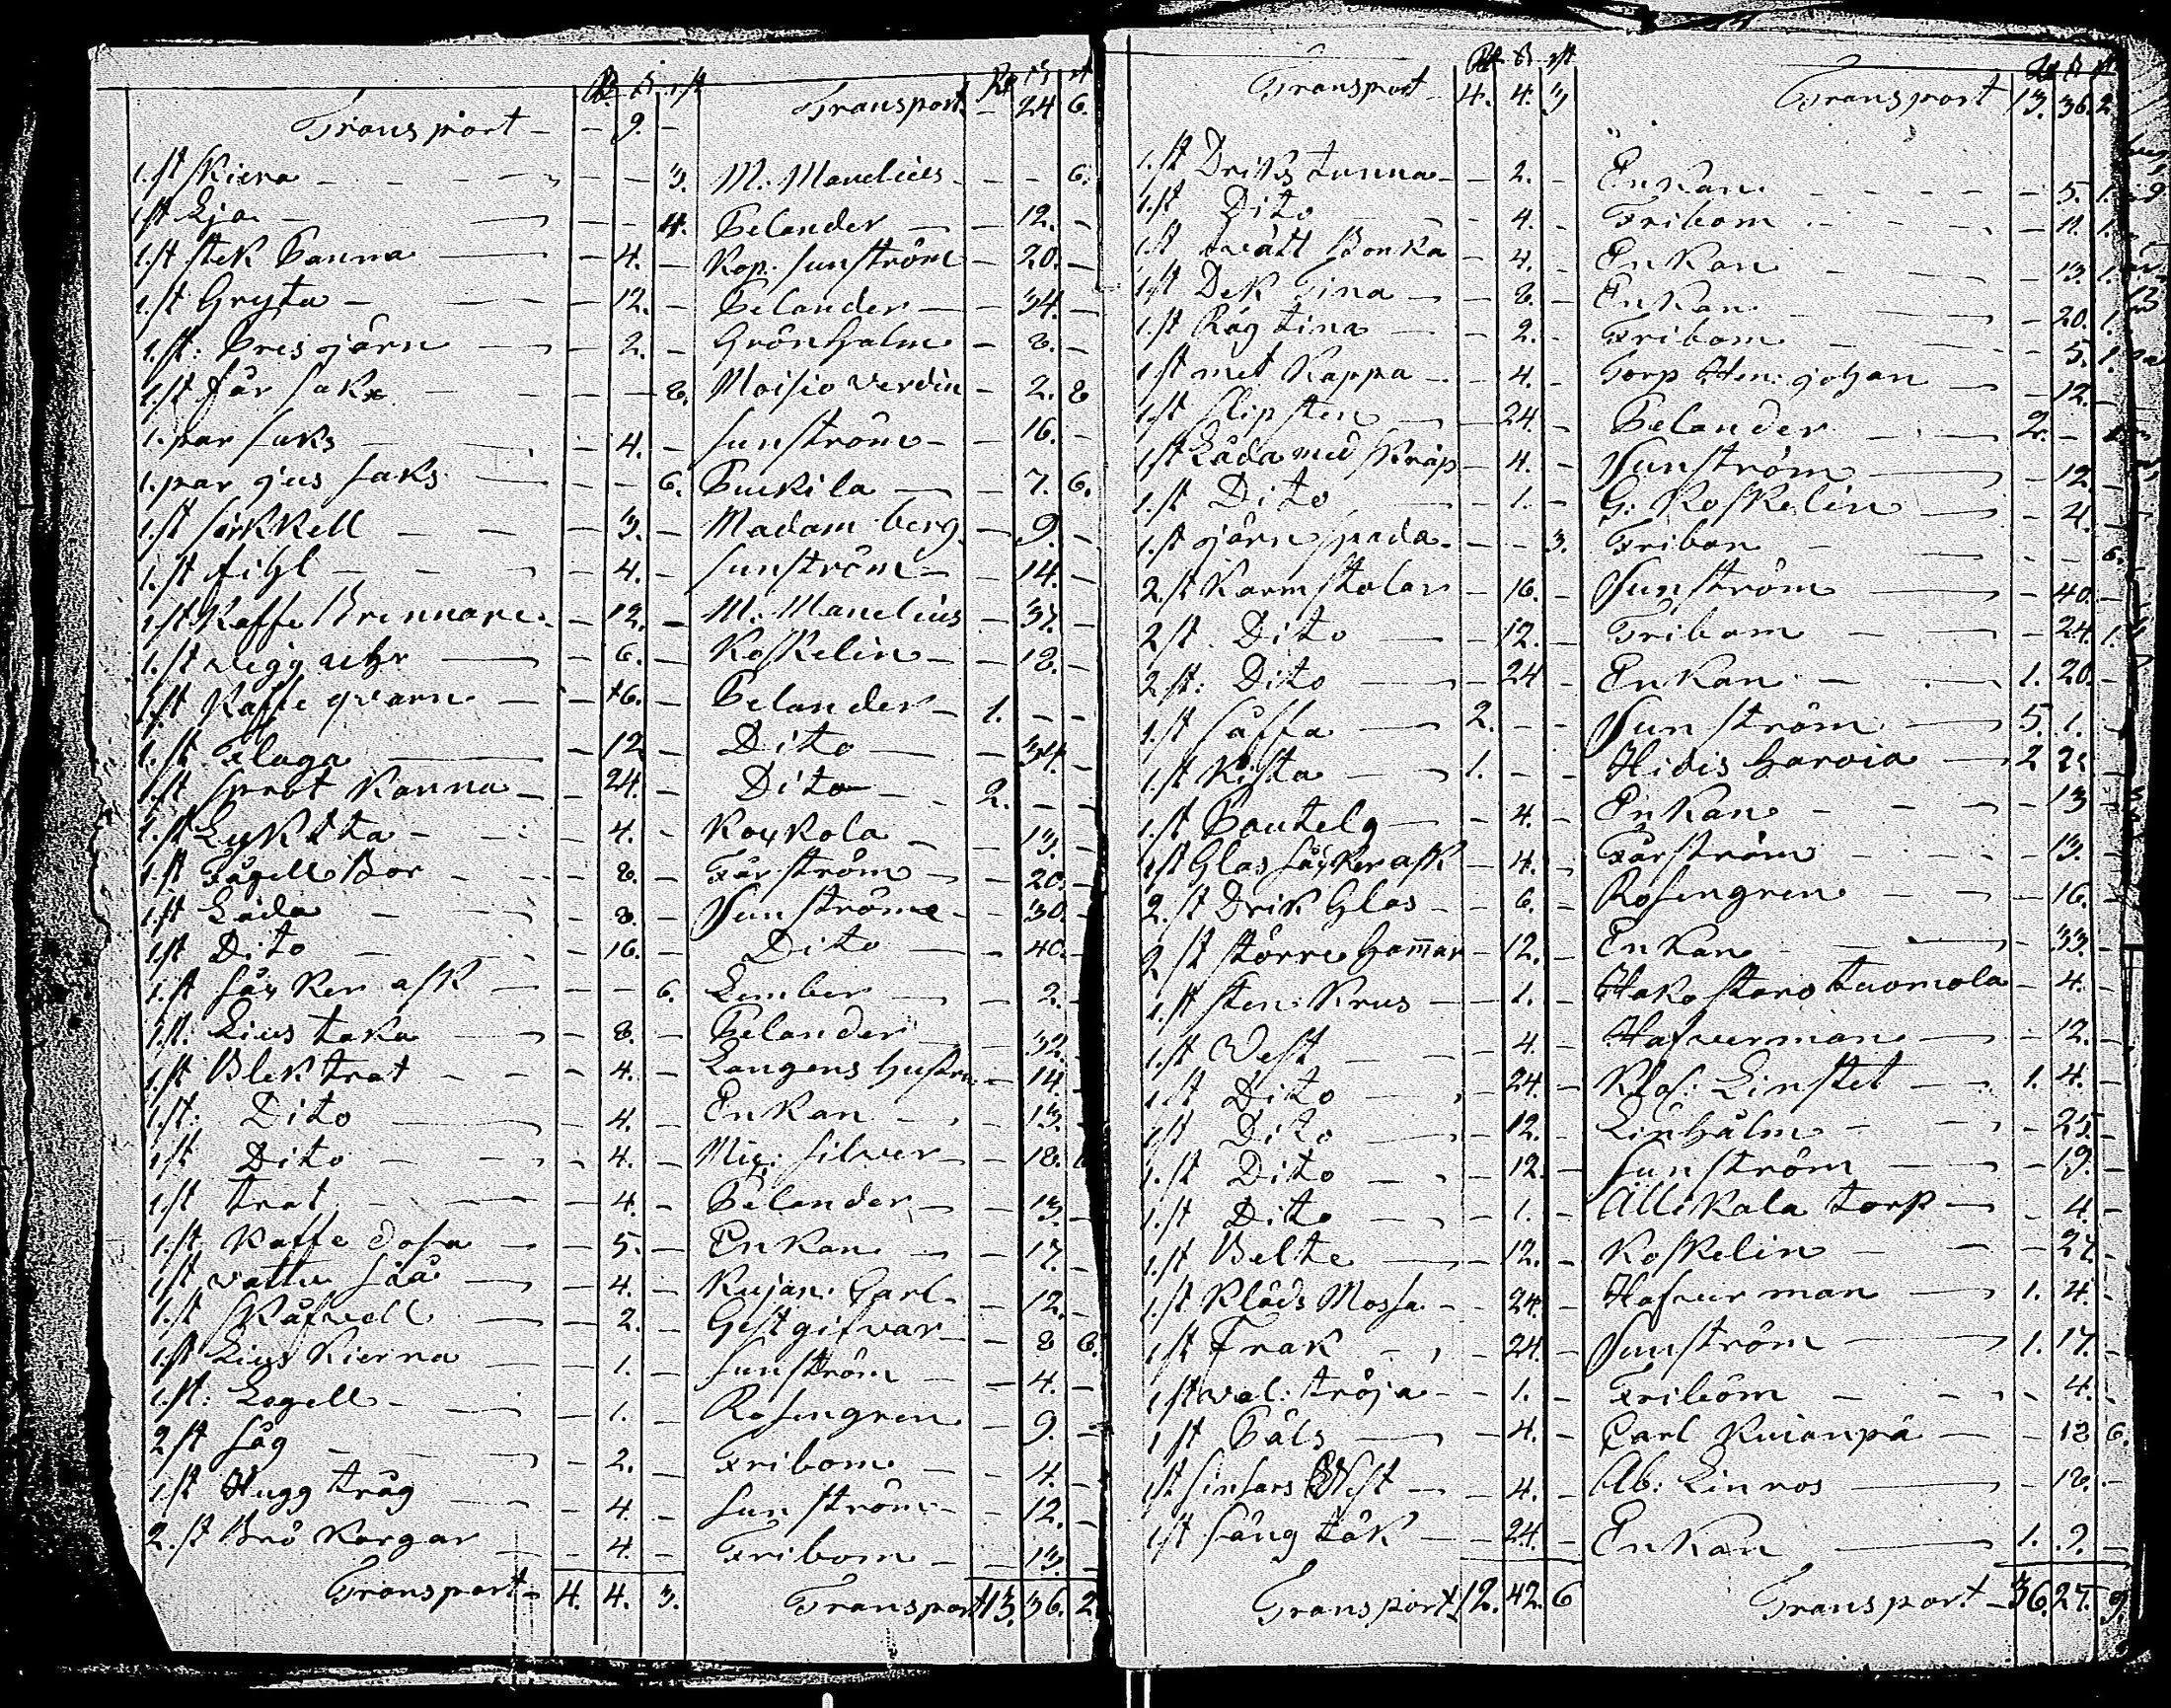 Rd ß rst Rd ß rst
Transport - - 9. - Transport - 24 6.
1. st Kiera - - - 3. M: Manelius - - - 6.
1 st Lja - - - 4. Pelander - - 12. -
1. st stek Panna - 4. - Kop. Sunström - 20. -
1. st Gryta - - 12. - Pelander - - 34. -
1. st: Presjärn - - 2. - Grönholm - 8. -
1. st får sax - - - 8. Moisio verdin - 2. 8
1. par saks - - 4. - Sunström - - 16. -
1. par jus saks - - - 6. Puckila - - 7. 6.
1. st sirkkell - - 3. - Madam berg - 9. -
1. st fihl - - 4. - Sunström - - 14. -
1 st Kaffe Brennare - 12. - M: Manelius - 37. -
1. st vegg uhr - 6. - Koskelin - - 18. -
1. st Kaffe qvarn - 16. - Pelander - 1. - -
1. st Flaga - 12 - Dito - - 34. -
1. st sprot Kanna - 24. - Dito - 2. - -
1. st Lyktta - - 4. - Koxkola - - 13. -
1. st Fågell Bor - - 8. - Färström - - 20. -
1 st Låda - - 8. - Sunström - - 30. -
1 st Dito - - 16. - Dito - - 40. -
1. st såcker ask - - - 6. Lember - - 2. -
1. st: Lius taka - - 8. - Pelander - - 32. -
1. st Blek trat - - 4. - Langens hustru - 14. -
1. st: Dito - - 4. - Enkan - - 13. -
1 st Dito - - 4. - Mig: Silver - - 18.
1 st trat - - 4. - Pelander - - 13. -
1. st Kaffe dosa - - 5. - Enkan - - 17. -
1 st vattu såå - - 4. - Kujan: Carl - - 12. -
1. st Skåfvell - - 2. - Gestgifvar - - 8 6.
1 st Lius Kierna - - 1. - Sunström - - 4. -
1. st: Legell - - 1. - Rosengren - - 9. -
2 st såg - - 2. - Fribom - - 4. -
1. st Hugg tråg - - 4. - Sunström - - 12. -
2. st Brö Korgar - - 4. - Fribom - - 13. -
Transport - 4. 4. 3. Transport 13. 36. 2

Rd ß rst Rd ß rst
Transport - 4. 4. 3 Transport 13. 36. 2.
1. st Driks tunna - - 2. - Enkan - - - 5. 1.
1. st Dito - - 4. - Fribom - - - 11. 1.
1. st tvätt Bonka - 4. - Enkan - - - 13. 1.
1 st Dek Tina - - 8. - Enkan - - - 20. 1.
1. st Råg tina - - 2. - Fribom - - - 5. 1.
1 st met Kappa - - 4. - Torp Hen: johan - - 12. -
1. st slipsten - 24. - Pelander - - 2. -
1 st Låda med skräp - 4. - Sunström - - 12. -
1. st Dito - 1. - G: Koskelin - - 4. -
1. st järn spada - - - 3. Fribom - - - 6.
2 st Karm stolar - 16. - Sunström - - 40. -
2 st. Dito - - 12. - Fribom - - - 24. 1.
2 st: Dito - - 24 - Enkan - - 1. 20. -
1. st såffa - 2. - - Sunström - 5. 1. -
1. st Kista - - 1. - - Hidis harvia - 2 2 -
1. st Pautelg - - 4. - Enkan - - - 13 -
1 st Glas såcker ask - 4. - Färström - - - 13. -
2. st Drik Glas - - 6. - Rosengren - - - 16. -
2 st större Hamar - 12. - Enkan - - 33. -
1. st sten Krus - - 1. - Hako staro tuomola - 4. -
1. st Vest - - 4. - Hafverman - - 12. -
1 st Dito - - 24. - Klos: Linstet - 1. 4. -
1 st Dito - - 12. - Linhålm - - - 25. -
1. st Dito - - 12. - Sunström - - 19. -
1. st Dito - - 1. - Allikala torp - - 4. -
1. st Belte - - 12. - Koskelin - - 27. -
1. st Klåds Mossa - - 24. - Hafver man - 1. 4. -
1 st Frak - - 24. - Sunström - 1. 17. -
1 st val: tröja - - 1. - Fribom - - - 4. -
1 st Päls - - 4. - Carl Kuianpä - - 12 6.
1 st sinsars Vest - - 4. - Ab: Linros - - 18. -
1 st sång täk - 24. - Enkan - 1. 9. -
Transport. 12. 42. 6 Transport - 36. 27. 9.